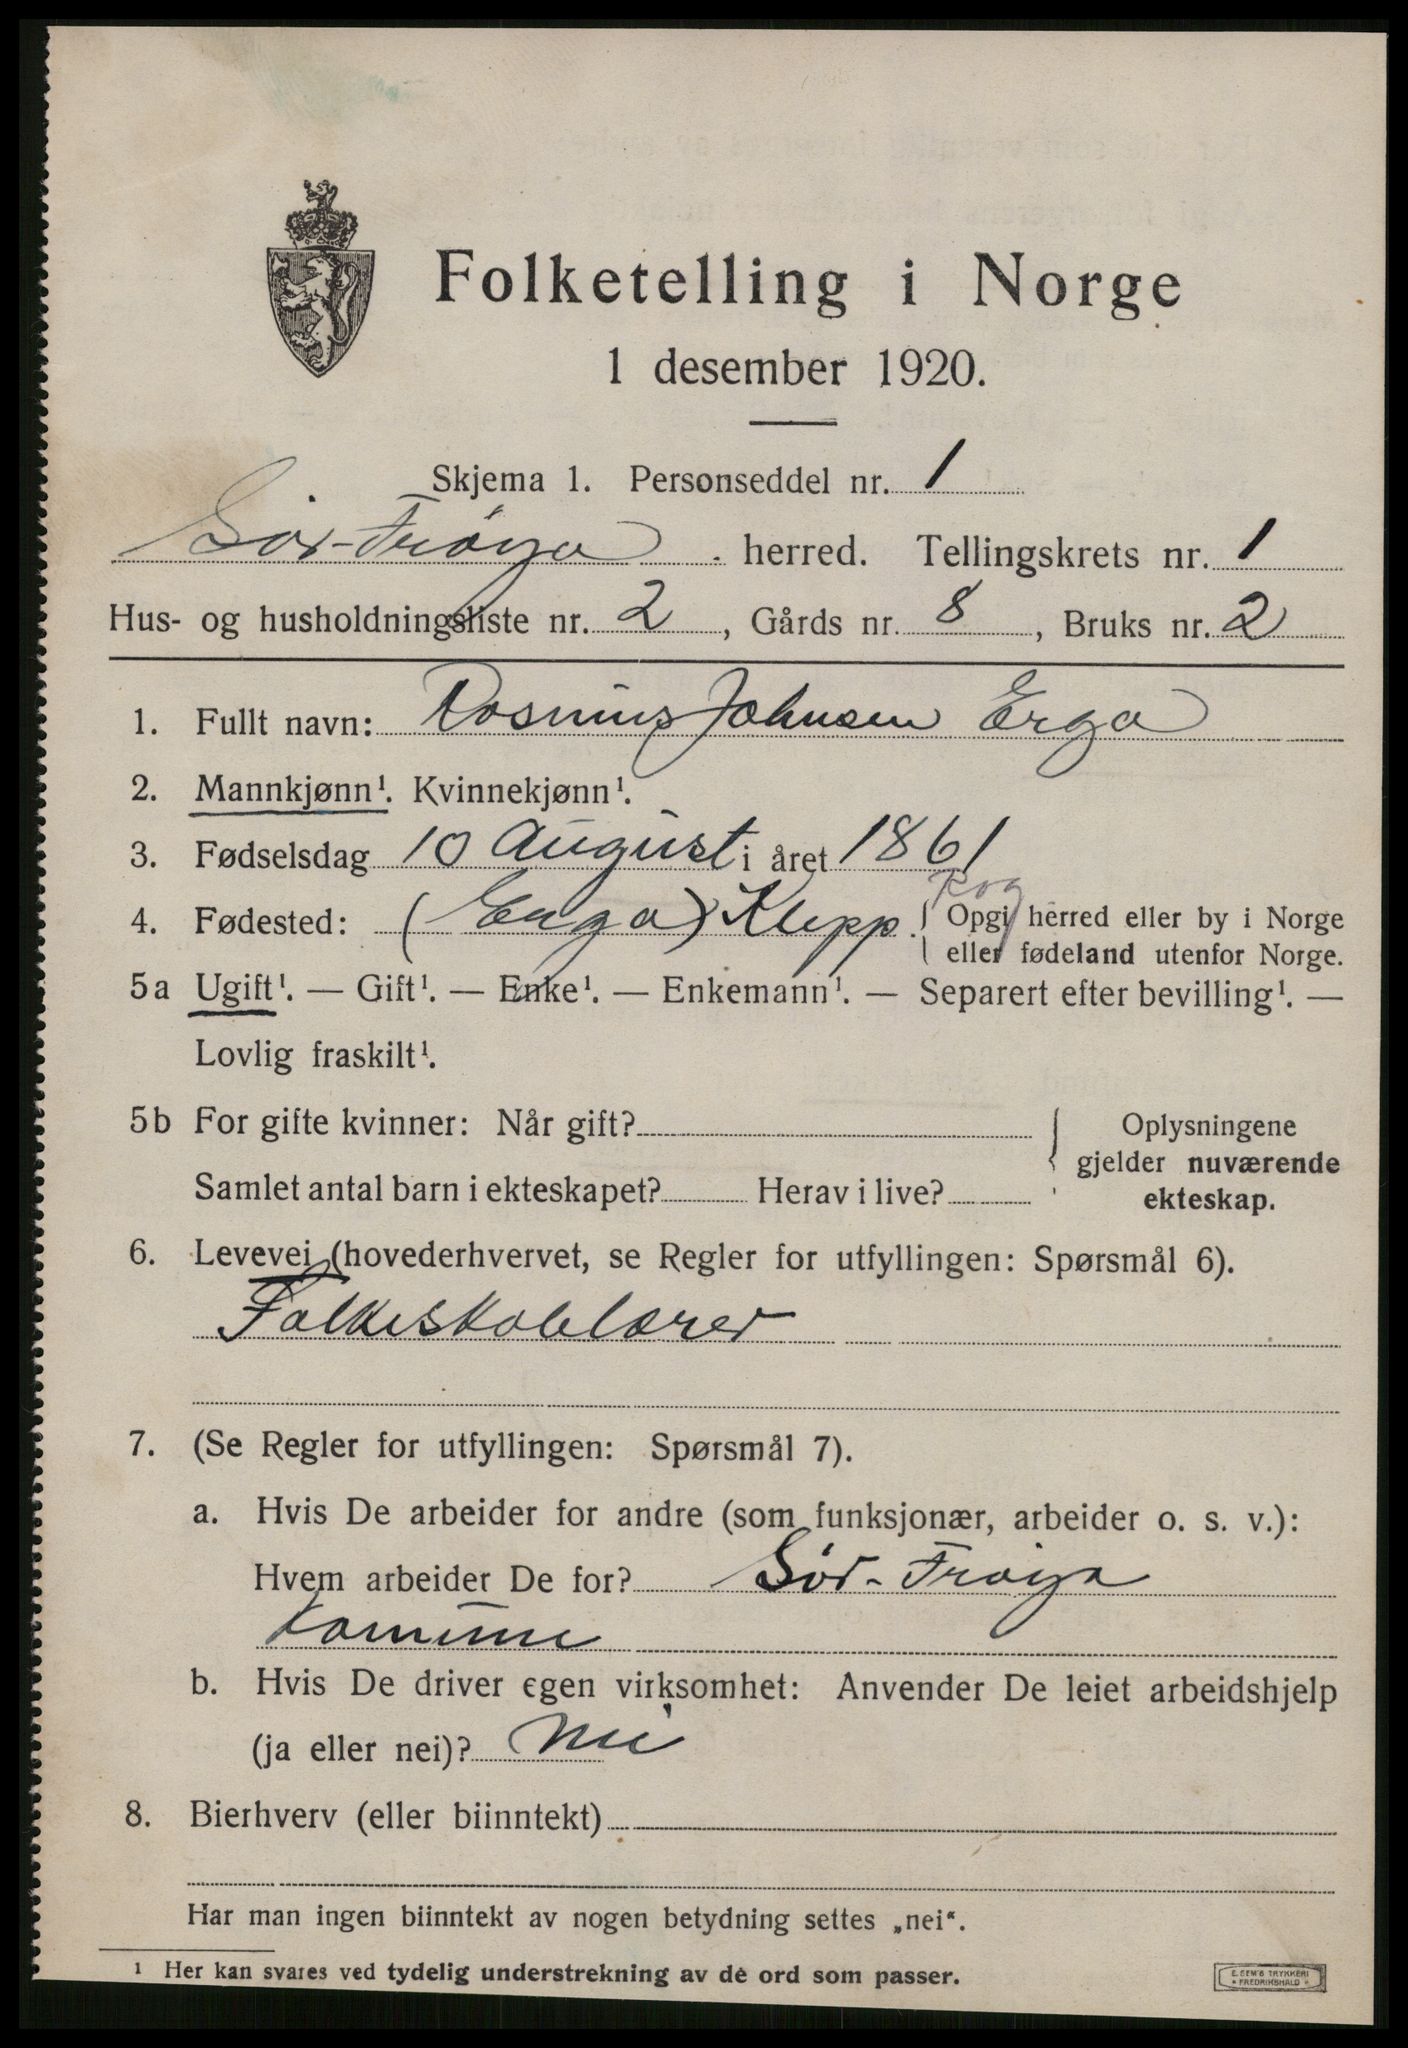 Folketelling i Norge
1 desember 1920.
Skjema 1. Personseddel nr. 1
Sör-Fröya herred. Tellingskrets nr. 1
Hus- og husholdningsliste nr. 2, Gårds nr. 8, Bruks nr. 2
1. Fullt navn: Rasmus Johnsen Erga
2. Mannkjønn¹. Kvinnekjønn¹.
3. Fødselsdag 10 August i året 1861
Rog
4. Fødested: (Erga) Klepp. { Opgi herred eller by i Norge
eller fødeland utenfor Norge.
5a Ugift¹. — Gift¹. — Enke¹. — Enkemann¹. — Separert efter bevilling¹. —
Lovlig fraskilt¹.
5b For gifte kvinner: Når gift? { Oplysningene
gjelder nuværende
Samlet antal barn i ekteskapet? Herav i live? ekteskap.
6. Levevei (hovederhvervet, se Regler for utfyllingen: Spørsmål 6).
Folkeskolelærer
7. (Se Regler for utfyllingen: Spørsmål 7).
a. Hvis De arbeider for andre (som funksjonær, arbeider o. s. v.):
Hvem arbeider De for? Sör-Fröya
Komune
b. Hvis De driver egen virksomhet: Anvender De leiet arbeidshjelp
(ja eller nei)? Nei
8. Bierhverv (eller biinntekt)
Har man ingen biinntekt av nogen betydning settes „nei“.
¹ Her kan svares ved tydelig understrekning av de ord som passer.
E. SEM'S TRYKKERI
• FREDRIKSHALD •